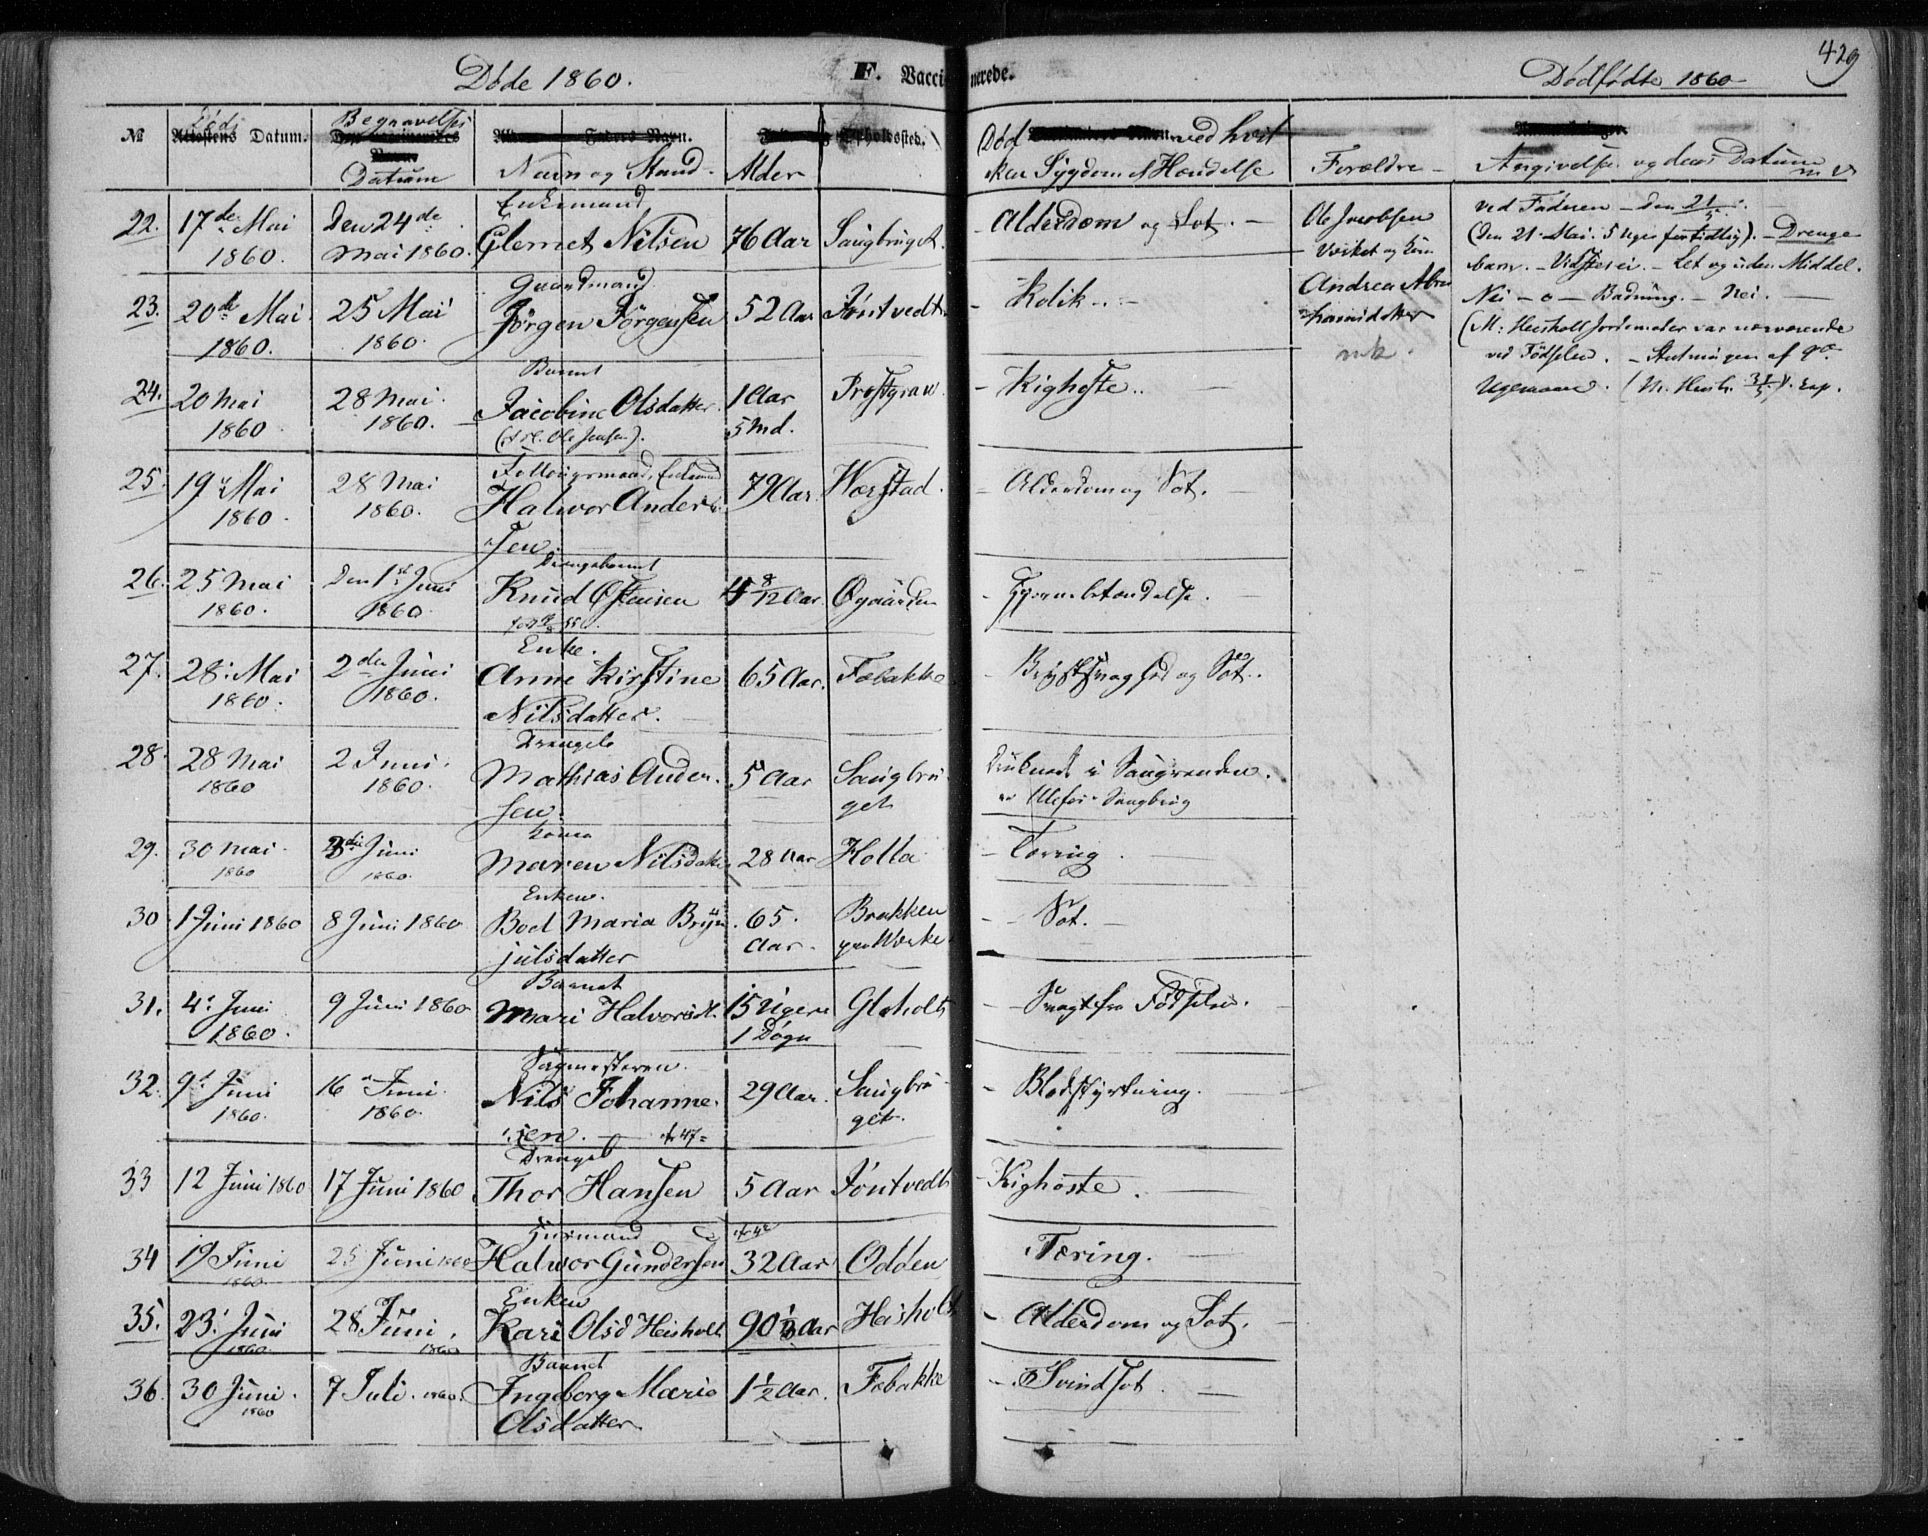 429
Døde 1860. F. Vaccinerede. Dødfødte 1860
№ Døds Datum. Begravelses Datum Navn og Stand. Alder Opholdssted. Død ved hvilken Sygdom el Hændelse Forældre Angivelse og dens Datum
Enkemand
22. 17de Mai 1860. Den 24de Mai 1860. Clemet Nilsen 76 Aar Saugbruget. Alderdom og Sot.
Gaardmand
23. 20de Mai 1860. 25 Mai 1860. Jørgen Jørgensen 52 Aar Jøntvedt Kolik.
Barnet
24. 20 Mai 1860 28 Mai 1860. Jacobine Olsdatter. 1 Aar 5 Md. Præstgrav. Kighoste.
(Ole Jensen).
25. 19 Mai 1860. 28 Mai 1860. Halvor Andersen 79 Aar. Værstad. Alderdom og Sot.
Drengebarnet
26. 25 Mai 1860. Den 1ste Juni 1860. Knud Østensen 4 8/12 Aar. Øygaarden Hjernebetændelse.
Enke.
27. 28. Mai 1860. 2den Juni 1860. Anne Kirstine Nilsdatter. 65 Aar. Fæbakke Brystsvaghed og Sot.
Drengeb
28. 28 Mai 1860 2 Juni. 1860. Mathias Andersen. 5 Aar Saugbruget Druknede i Saugrenden.
Ulefos Saugbrug
Kone
29. 30 Mai 1860 3die Juni 1860. Maren Nilsdatter 28 Aar Holla Tæring.
Enken.
30 1 Juni 1860 8 Juni 1860 Boel Maria Brynjulsdatter 65. Aar. Brækken Sot.
Barnet
31. 4. Juni 1860. 9 Juni 1860 Mari Halvorsdt. 15 Uger 1 Døgn Glaholt Svagt fra Fødselen.
Sagmesteren.
32. 9. Juni 1860. 16 Juni 1860. Nils Johannesen. 29 Aar. Saugbruget. Blodstyrtning.
Drengeb
33 12 Juni 1860 17 Juni 1860 Thor Hansen 5 Aar Jøntvedt Kighoste.
Husmand
34 19 Juni 1860. 25 Juni 1860 Halvor Gundersen 32 Aar Odden Tæring.
Enken
35. 23. Juni 1860. 28 Juni. 1860 Kari Olsd Heisholt 90 1/3 Aar Heisholt Alderdom og Sot.
Barnet
36. 30 Juni. 1860 7 Juli. 1860. Ingeborg Marie Olsdatter 1 1/2 Aar. Fæbakke Svindsot.
Ole Jacobsen
Værket og Kone
Andrea Abrahamsdatter
ved Faderen – den 21/5.
(Den 21. Mai. 5 Uger fortidlig). – Drengebarn. – Let og uden Middel.
Nei – o – Badning. – Nei.
(M: Heisholt Jordemoder var nærværende
ved Fødselen. – Slutningen af 9de
Ugemaane.